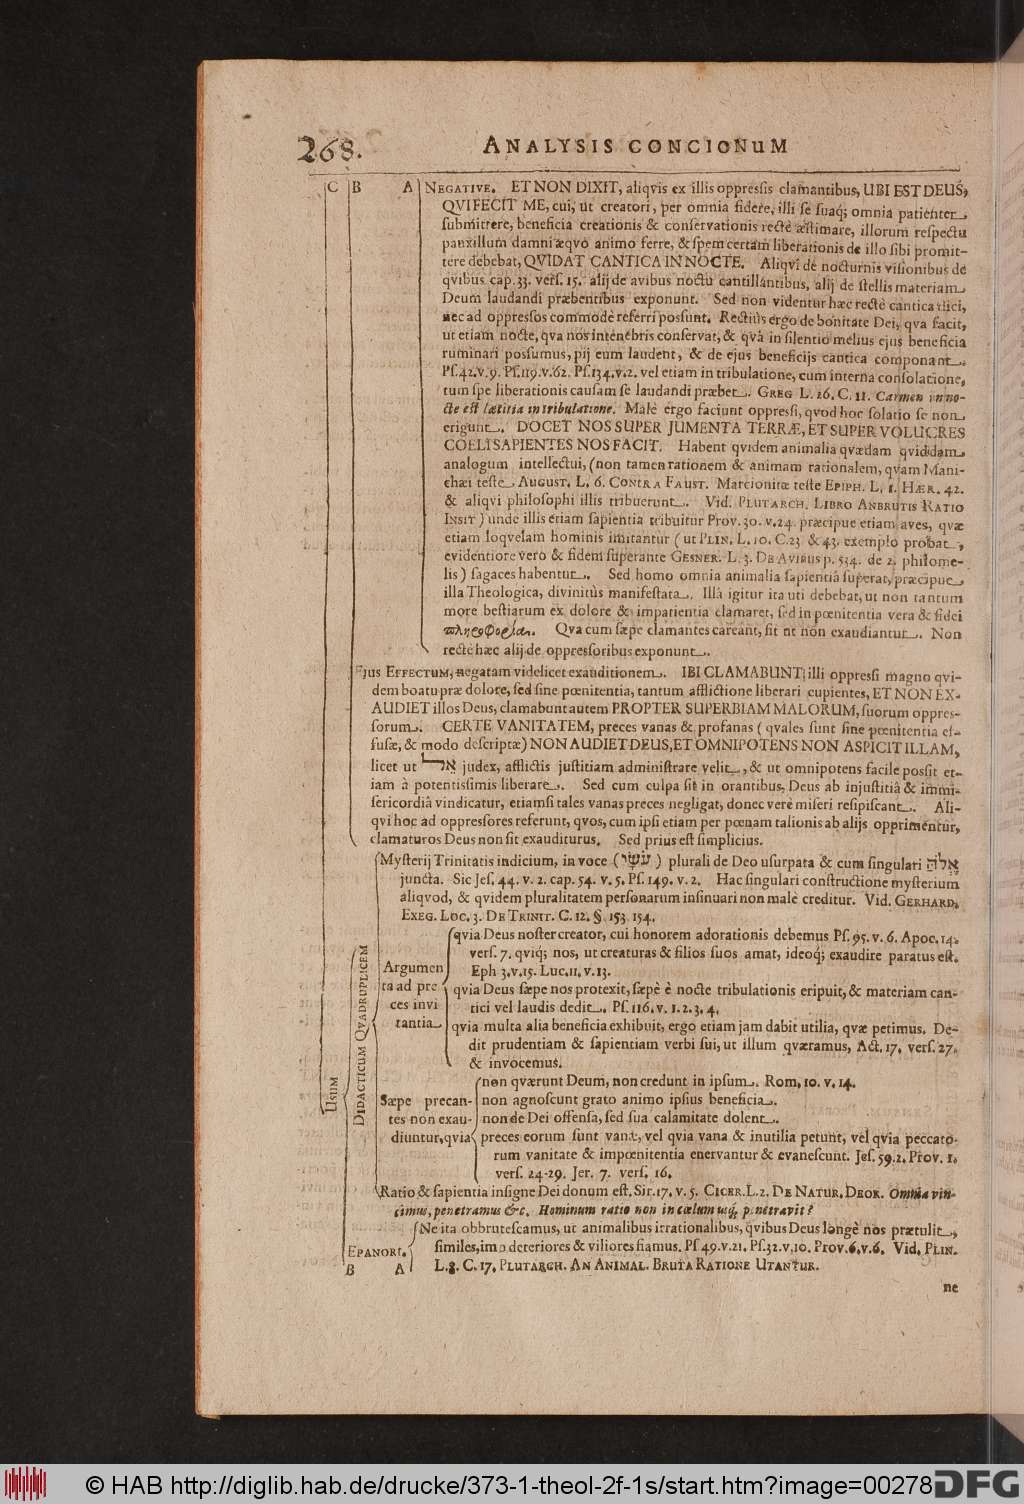 268. ANALYSIS CONCIONUM
C B A NEGATIVE. ET NON DIXIT, aliqvis ex illis oppressis clamantibus, UBI EST DEUS,
QVI FECIT ME, cui, ut creatori, per omnia fidere, illi se suaq; omnia patienter
submittere, beneficia creationis & conservationis rectè æstimare, illorum respectu
pauxillum damni æqvo animo ferre, & spem certam liberationis de illo sibi promit-
tere debebat, QVI DAT CANTICA IN NOCTE. Aliqvi de nocturnis visionibus de
qvibus cap. 33. vers. 15. alij de avibus noctu cantillantibus, alij de stellis materiam
Deum laudandi præbentibus exponunt. Sed non videntur hæc rectè cantica dici,
nec ad oppressos commodè referri possunt. Rectiùs ergo de bonitate Dei, qva facit,
ut etiam nocte, qva nos in tenebris conservat, & qvâ in silentio melius ejus beneficia
ruminari possumus, pij eum laudent, & de ejus beneficijs cantica componant.
Ps. 42. v. 9. Ps. 119. v. 62. Ps. 134. v. 2. vel etiam in tribulatione, cum interna consolatione,
tum spe liberationis causam se laudandi præbet. GREG L. 26. C. 11. Carmen in no-
cte est lætitia in tribulatione. Malè ergo faciunt oppressi, qvod hoc solatio se non
erigunt. DOCET NOS SUPER JUMENTA TERRÆ, ET SUPER VOLUCRES
COELI SAPIENTES NOS FACIT. Habent qvidem animalia qvædam qviddam
analogum intellectui, (non tamen rationem & animam rationalem, qvam Mani-
chæi teste AUGUST. L. 6. CONTRA FAUST. Marcionitæ teste EPIPH. L. 1. HÆR. 42.
& aliqvi philosophi illis tribuerunt. Vid. PLUTARCH. LIBRO AN BRUTIS RATIO
INSIT) unde illis etiam sapientia tribuitur Prov. 30. v. 24. præcipue etiam aves, qvæ
etiam loqvelam hominis imitantur (ut PLIN. L. 10. C. 23 & 43. exemplo probat,
evidentiore verò & fidem superante GESNER. L. 3. DE AVIBUS p. 534. de 2. philome-
lis) sagaces habentur. Sed homo omnia animalia sapientiâ superat, præcipue
illa Theologica, divinitùs manifestata. Illâ igitur ita uti debebat, ut non tantum
more bestiarum ex dolore & impatientia clamaret, sed in pœnitentia vera & fidei
πληροφορίᾳ. Qva cum sæpe clamantes careant, fit ut non exaudiantur. Non
rectè hæc alij de oppressoribus exponunt.
Ejus EFFECTUM, negatam videlicet exauditionem. IBI CLAMABUNT illi oppressi magno qvi-
dem boatu præ dolore, sed sine pœnitentia, tantum afflictione liberari cupientes, ET NON EX-
AUDIET illos Deus, clamabunt autem PROPTER SUPERBIAM MALORUM, suorum oppres-
sorum. CERTE VANITATEM, preces vanas & profanas (qvales sunt sine pœnitentia ef-
fusæ, & modo descriptæ) NON AUDIET DEUS, ET OMNIPOTENS NON ASPICIT ILLAM,
licet ut אל judex, afflictis justitiam administrare velit, & ut omnipotens facile possit et-
iam à potentissimis liberare. Sed cum culpa sit in orantibus, Deus ab injustitiâ & immi-
sericordiâ vindicatur, etiamsi tales vanas preces negligat, donec verè miseri resipiscant. Ali-
qvi hoc ad oppressores referunt, qvos, cum ipsi etiam per pœnam talionis ab alijs opprimentur,
clamaturos Deus non sit exauditurus. Sed prius est simplicius.
Mysterij Trinitatis indicium, in voce (עשׂי) plurali de Deo usurpata & cum singulari אלה
juncta. Sic Jes. 44. v. 2. cap. 54. v. 5. Ps. 149. v. 2. Hac singulari constructione mysterium
aliqvod, & qvidem pluralitatem personarum insinuari non malè creditur. Vid. GERHARD.
EXEG. LOC. 3. DE TRINIT. C. 12. §. 153. 154.
USUM
DIDACTICUM QVADRUPLICEM
Argumen
ta ad pre
ces invi
tantia
qvia Deus noster creator, cui honorem adorationis debemus Ps. 95. v. 6. Apoc. 14.
vers. 7. qviq; nos, ut creaturas & filios suos amat, ideoq; exaudire paratus est.
Eph 3. v. 15. Luc. 11. v. 13.
qvia Deus sæpe nos protexit, sæpè è nocte tribulationis eripuit, & materiam can-
tici vel laudis dedit. Ps. 116. v. 1. 2. 3. 4.
qvia multa alia beneficia exhibuit, ergo etiam jam dabit utilia, qvæ petimus. De-
dit prudentiam & sapientiam verbi sui, ut illum qværamus, Act. 17. vers. 27.
& invocemus.
Sæpe precan-
tes non exau-
diuntur, qvia
non qværunt Deum, non credunt in ipsum. Rom. 10. v. 14.
non agnoscunt grato animo ipsius beneficia.
non de Dei offensa, sed sua calamitate dolent.
preces eorum sunt vanæ, vel qvia vana & inutilia petunt, vel qvia peccato-
rum vanitate & impœnitentia enervantur & evanescunt. Jes. 59. 2. Prov. 1.
vers. 24-29. Jer. 7. vers. 16.
Ratio & sapientia insigne Dei donum est. Sir. 17. v. 5. CICER. L. 2. DE NATUR. DEOR. Omnia vin-
cimus, penetramus &c. Hominum ratio non in cœlum usq; penetravit?
EPANORT.
Ne ita obbrutescamus, ut animalibus irrationalibus, qvibus Deus longè nos prætulit,
similes, imò deteriores & viliores fiamus. Ps 49. v. 21. Ps. 32. v. 10. Prov. 6. v. 6. Vid. PLIN.
L. 8. C. 17. PLUTARCH. AN ANIMAL. BRUTA RATIONE UTANTUR.
B A
ne
© HAB http://diglib.hab.de/drucke/373-1-theol-2f-1s/start.htm?image=00278
DFG